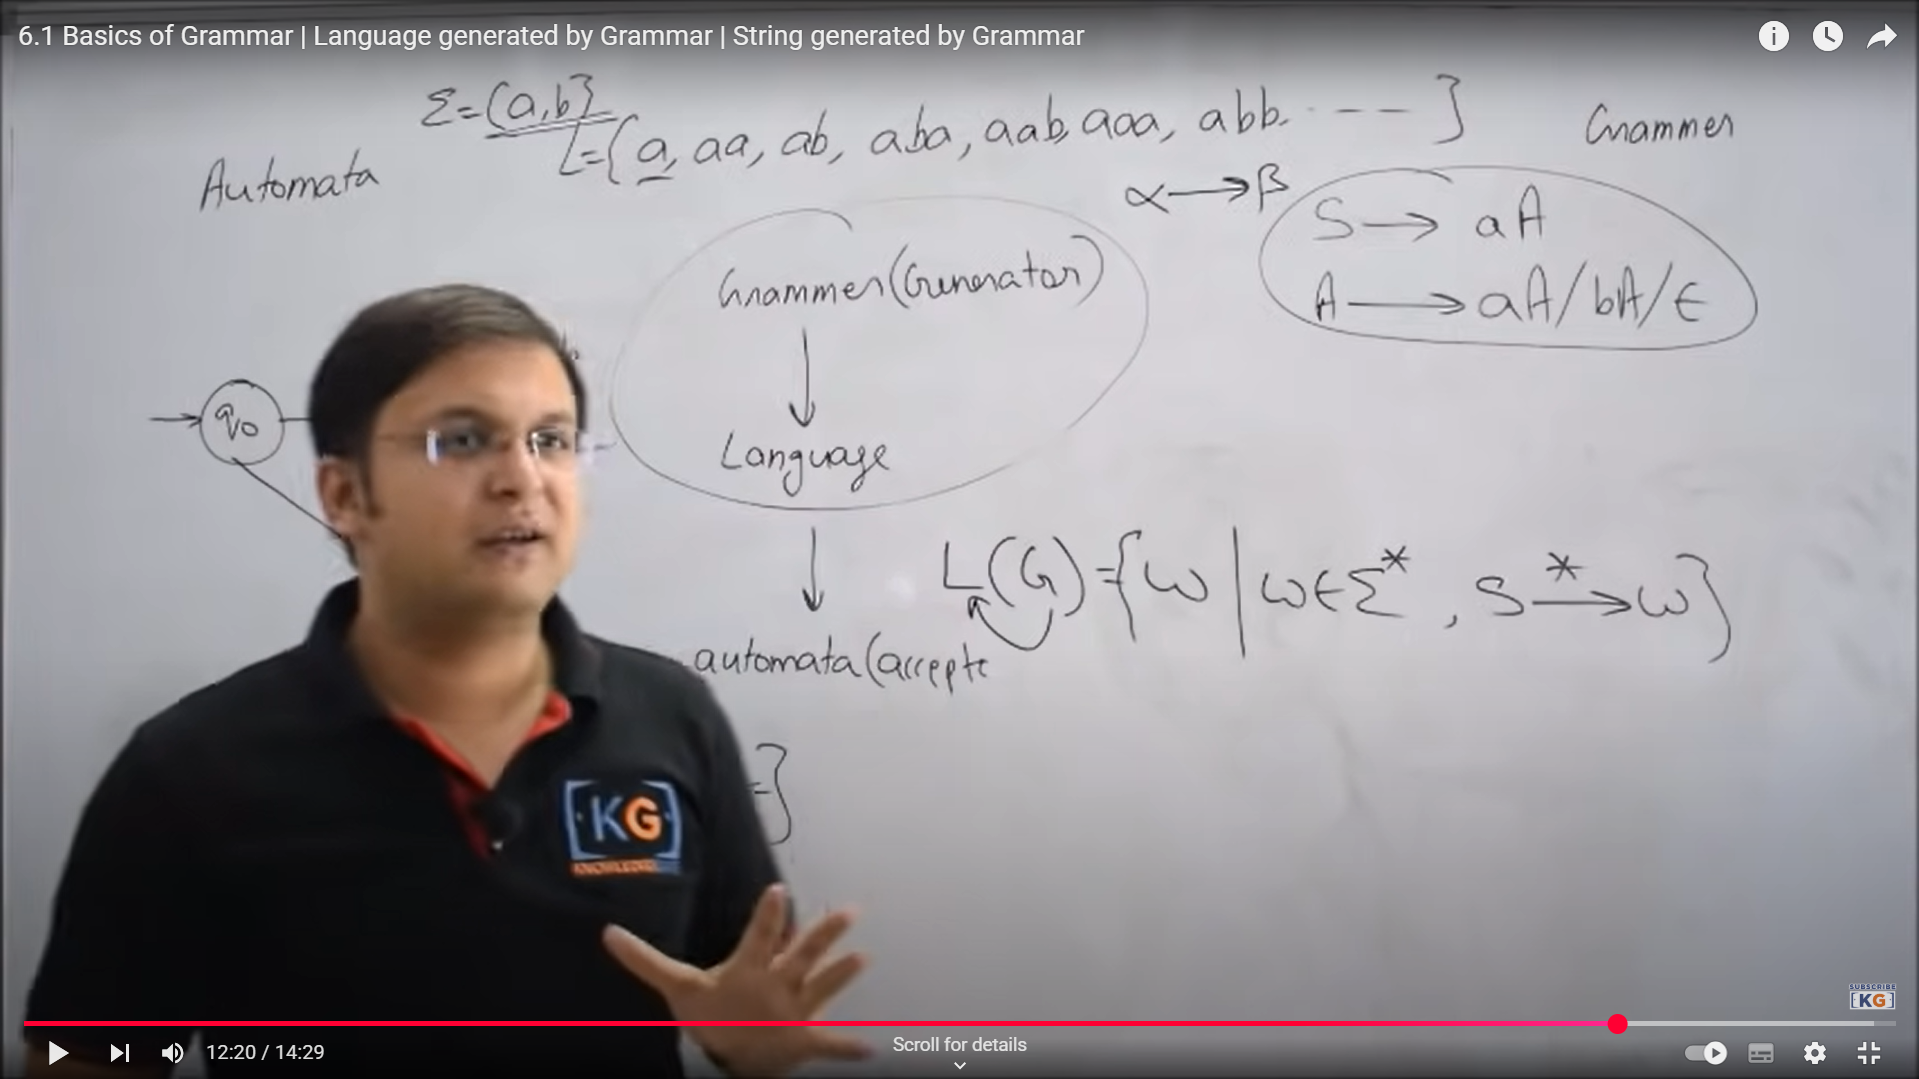 6.1 Basics of Grammar | Language generated by Grammar | String generated by Grammar
Σ={a,b}
L={a, aa, ab, aba, aab, aaa, abb. - - - -}
Grammer
Automata
α→β
S → aA
A → aA/bA/ε
Grammer(Generator)
q₀
Language
L(G)={w|w∈Σ*, S *→ w}
automata(accepte
-}
[KG]
KNOWLEDGE
SUBSCRIBE
[KG]
12:20 / 14:29
Scroll for details